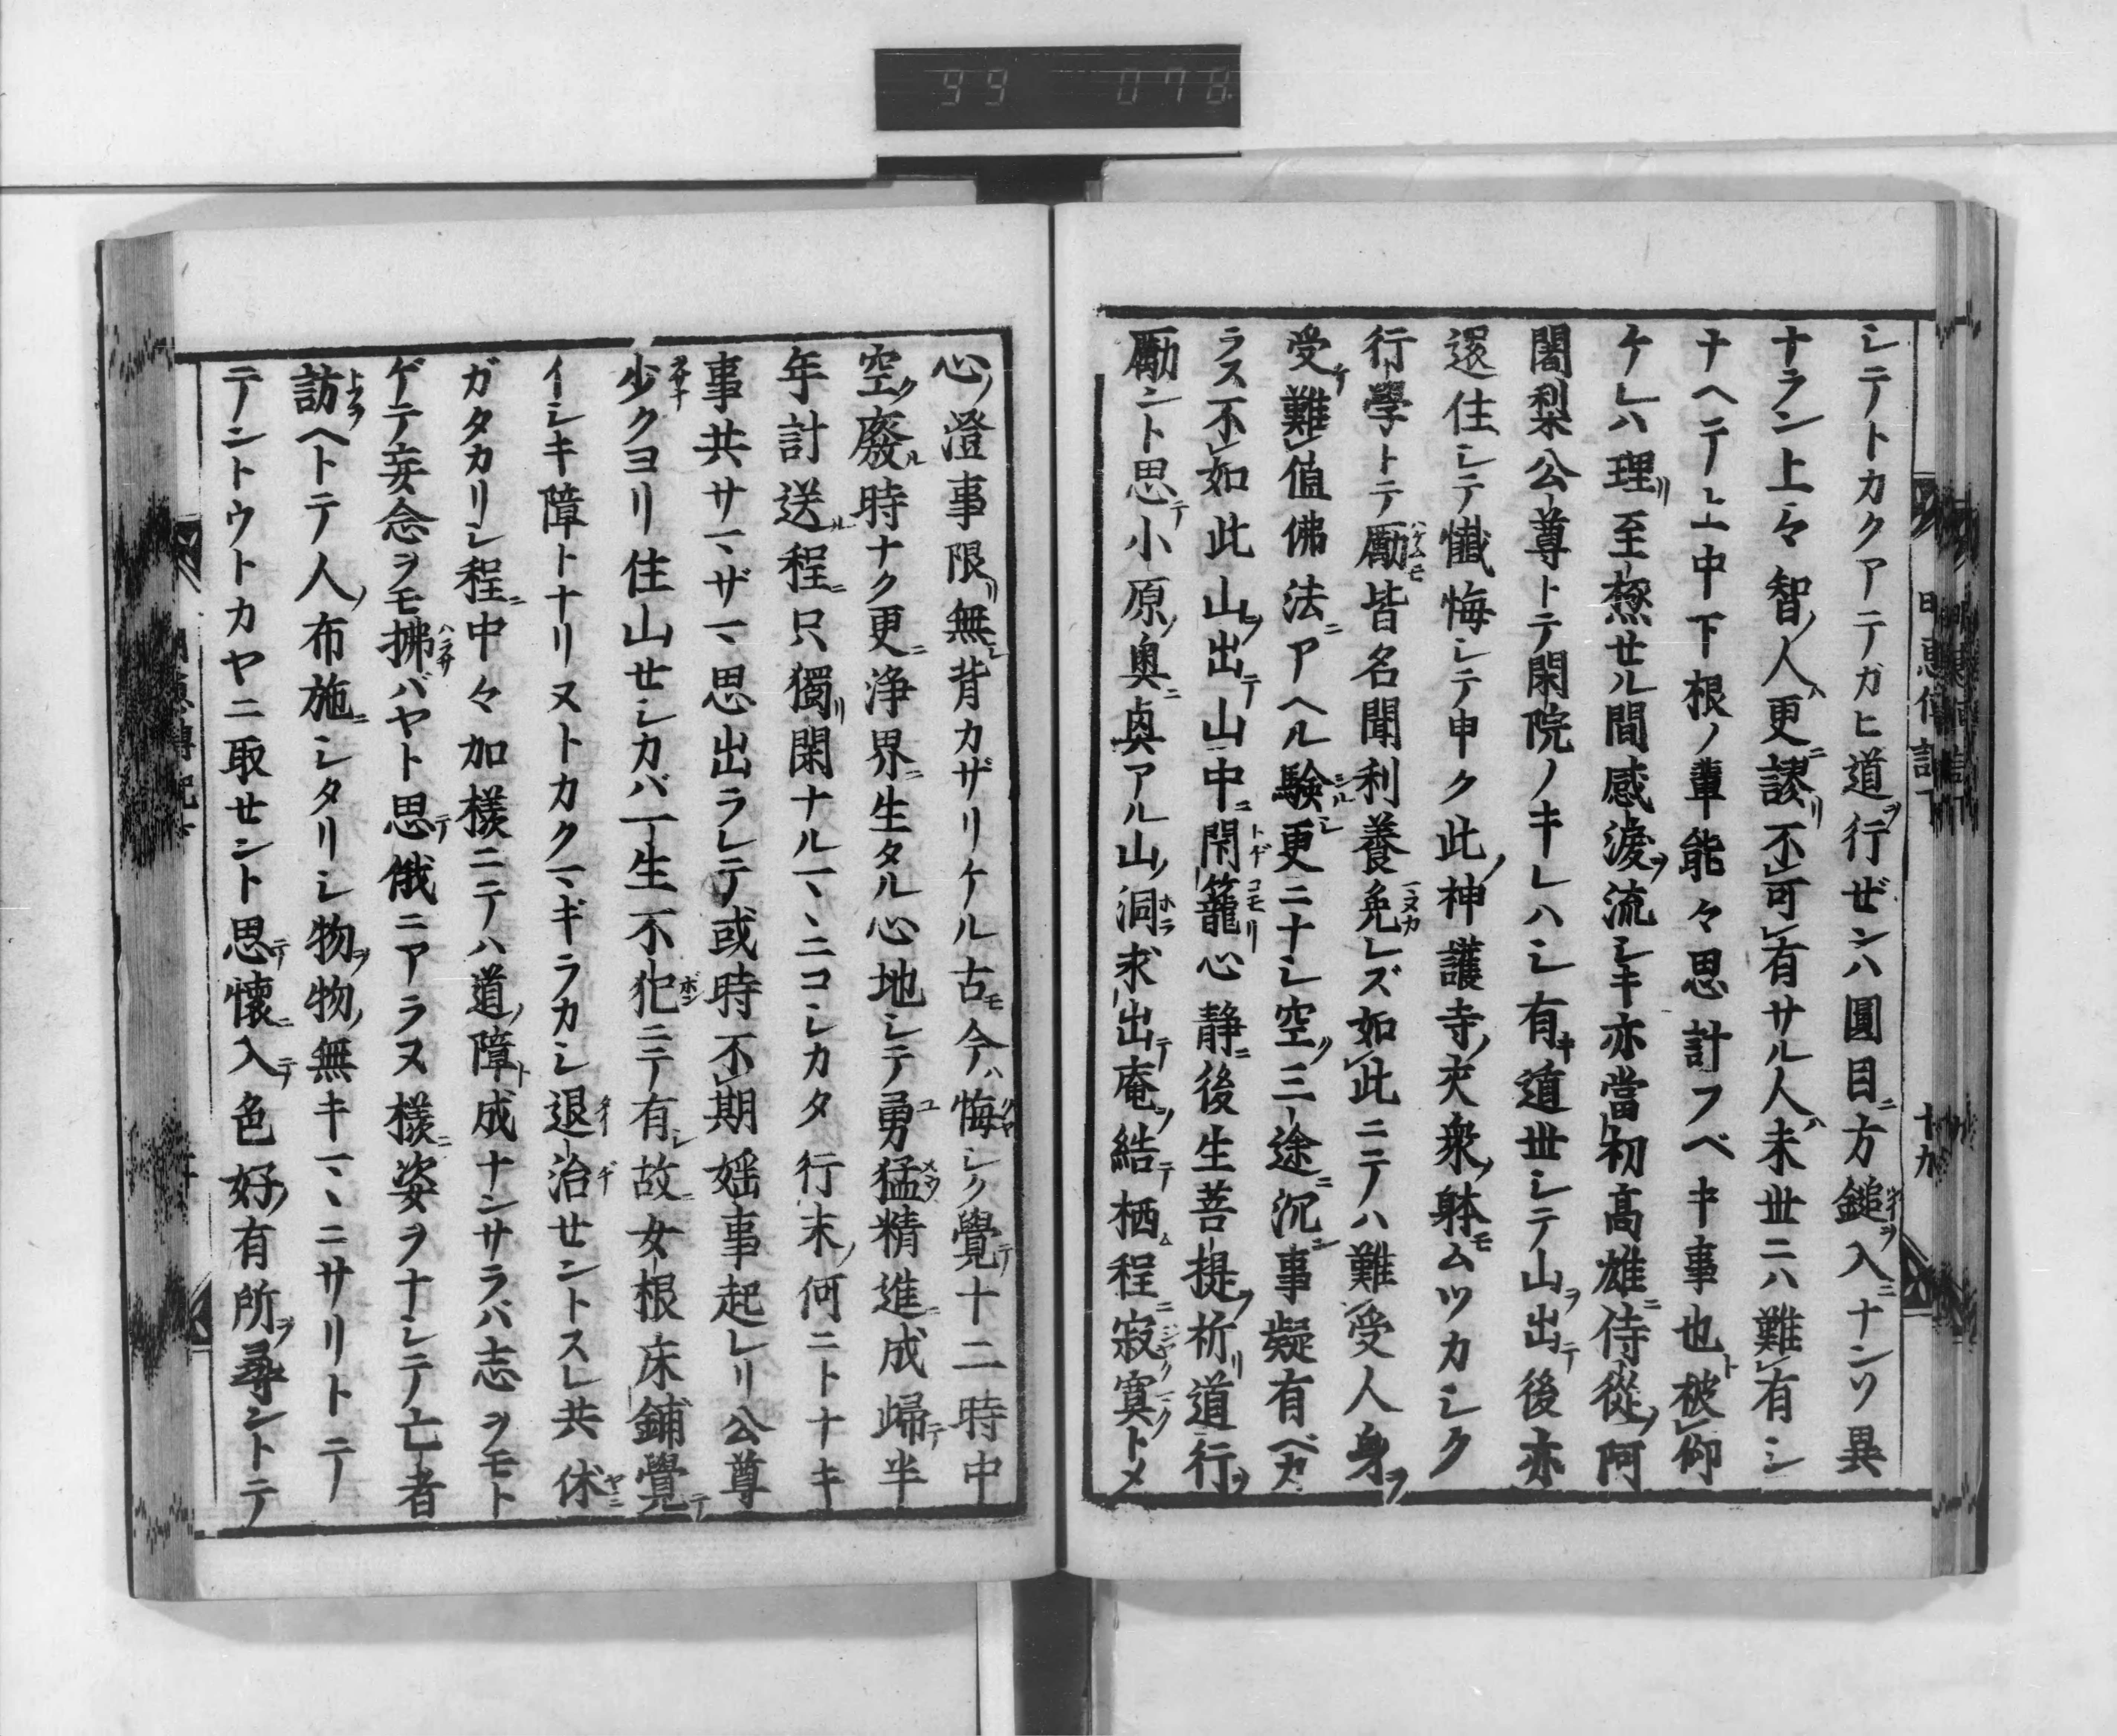 99 078
シテトカクアテガヒ道ヲ行ゼンハ圓目ニ方鎚ヲ入ニナンソ異
ナラン上々智ノ人ハ更ニ謬リ不可有サル人ハ末世ニハ難有シ
ナヘテノ上中下根ノ輩能々思計フベキ事也ト被仰
ケレハ理リ至極セル間感涙ヲ流シキ亦當初高雄ニ侍從ノ阿
闍梨公尊トテ閑院ノキレハシ有キ遁世シテ山ヲ出テ後亦
還住シテ懺悔シテ申ク此ノ神護寺ノ夾衆ノ躰モムツカシク
行學トテ勵モ皆名聞利養免レズ如此ニテハ難受人身ヲ
受テ難値佛法ニアヘル驗シ更ニナシ空ク三途ニ沉ン事疑有ベカ
ラス不如此山ヲ出テ山中ニ閇籠リ心静ニ後生菩提ヲ祈リ道行ヲ
勵ント思テ小原ノ奥ニ奥アル山ノ洞求出テ庵ヲ結テ栖ム程ニ寂寞トメ
心ノ澄事限リ無シ背カザリケル古モ今ハ悔シク覺テ十二時中
空ク廢ル時ナク更ニ浄界ニ生タル心地シテ勇猛精進ニ成歸テ半
年計送ル程ニ只獨リ閑ナルマヽニコシカタ行末ノ何ニトナキ
事共サマヽザマ思出ラレテ或時不期婬事起レリ公尊
少クヨリ住山セシカバ一生不犯ニテ有シ故ニ女根床鋪覺テ
イシキ障トナリヌトカクマギラカシ退治セントスレ共休ニ
ガタカリシ程ニ中々加樣ニテハ道ノ障ト成ナンサラバ志ヲモト
ゲテ妄念ヲモ拂バヤト思テ俄ニアラヌ樣ニ姿ヲナシテ亡者
訪ヘトテ人ノ布施ニシタリシ物ヲ物ノ無キマヽニサリトテ
テントウトカヤニ取セント思テ懷ニ入テ色好ノ有所ヲ尋ントテ
十九